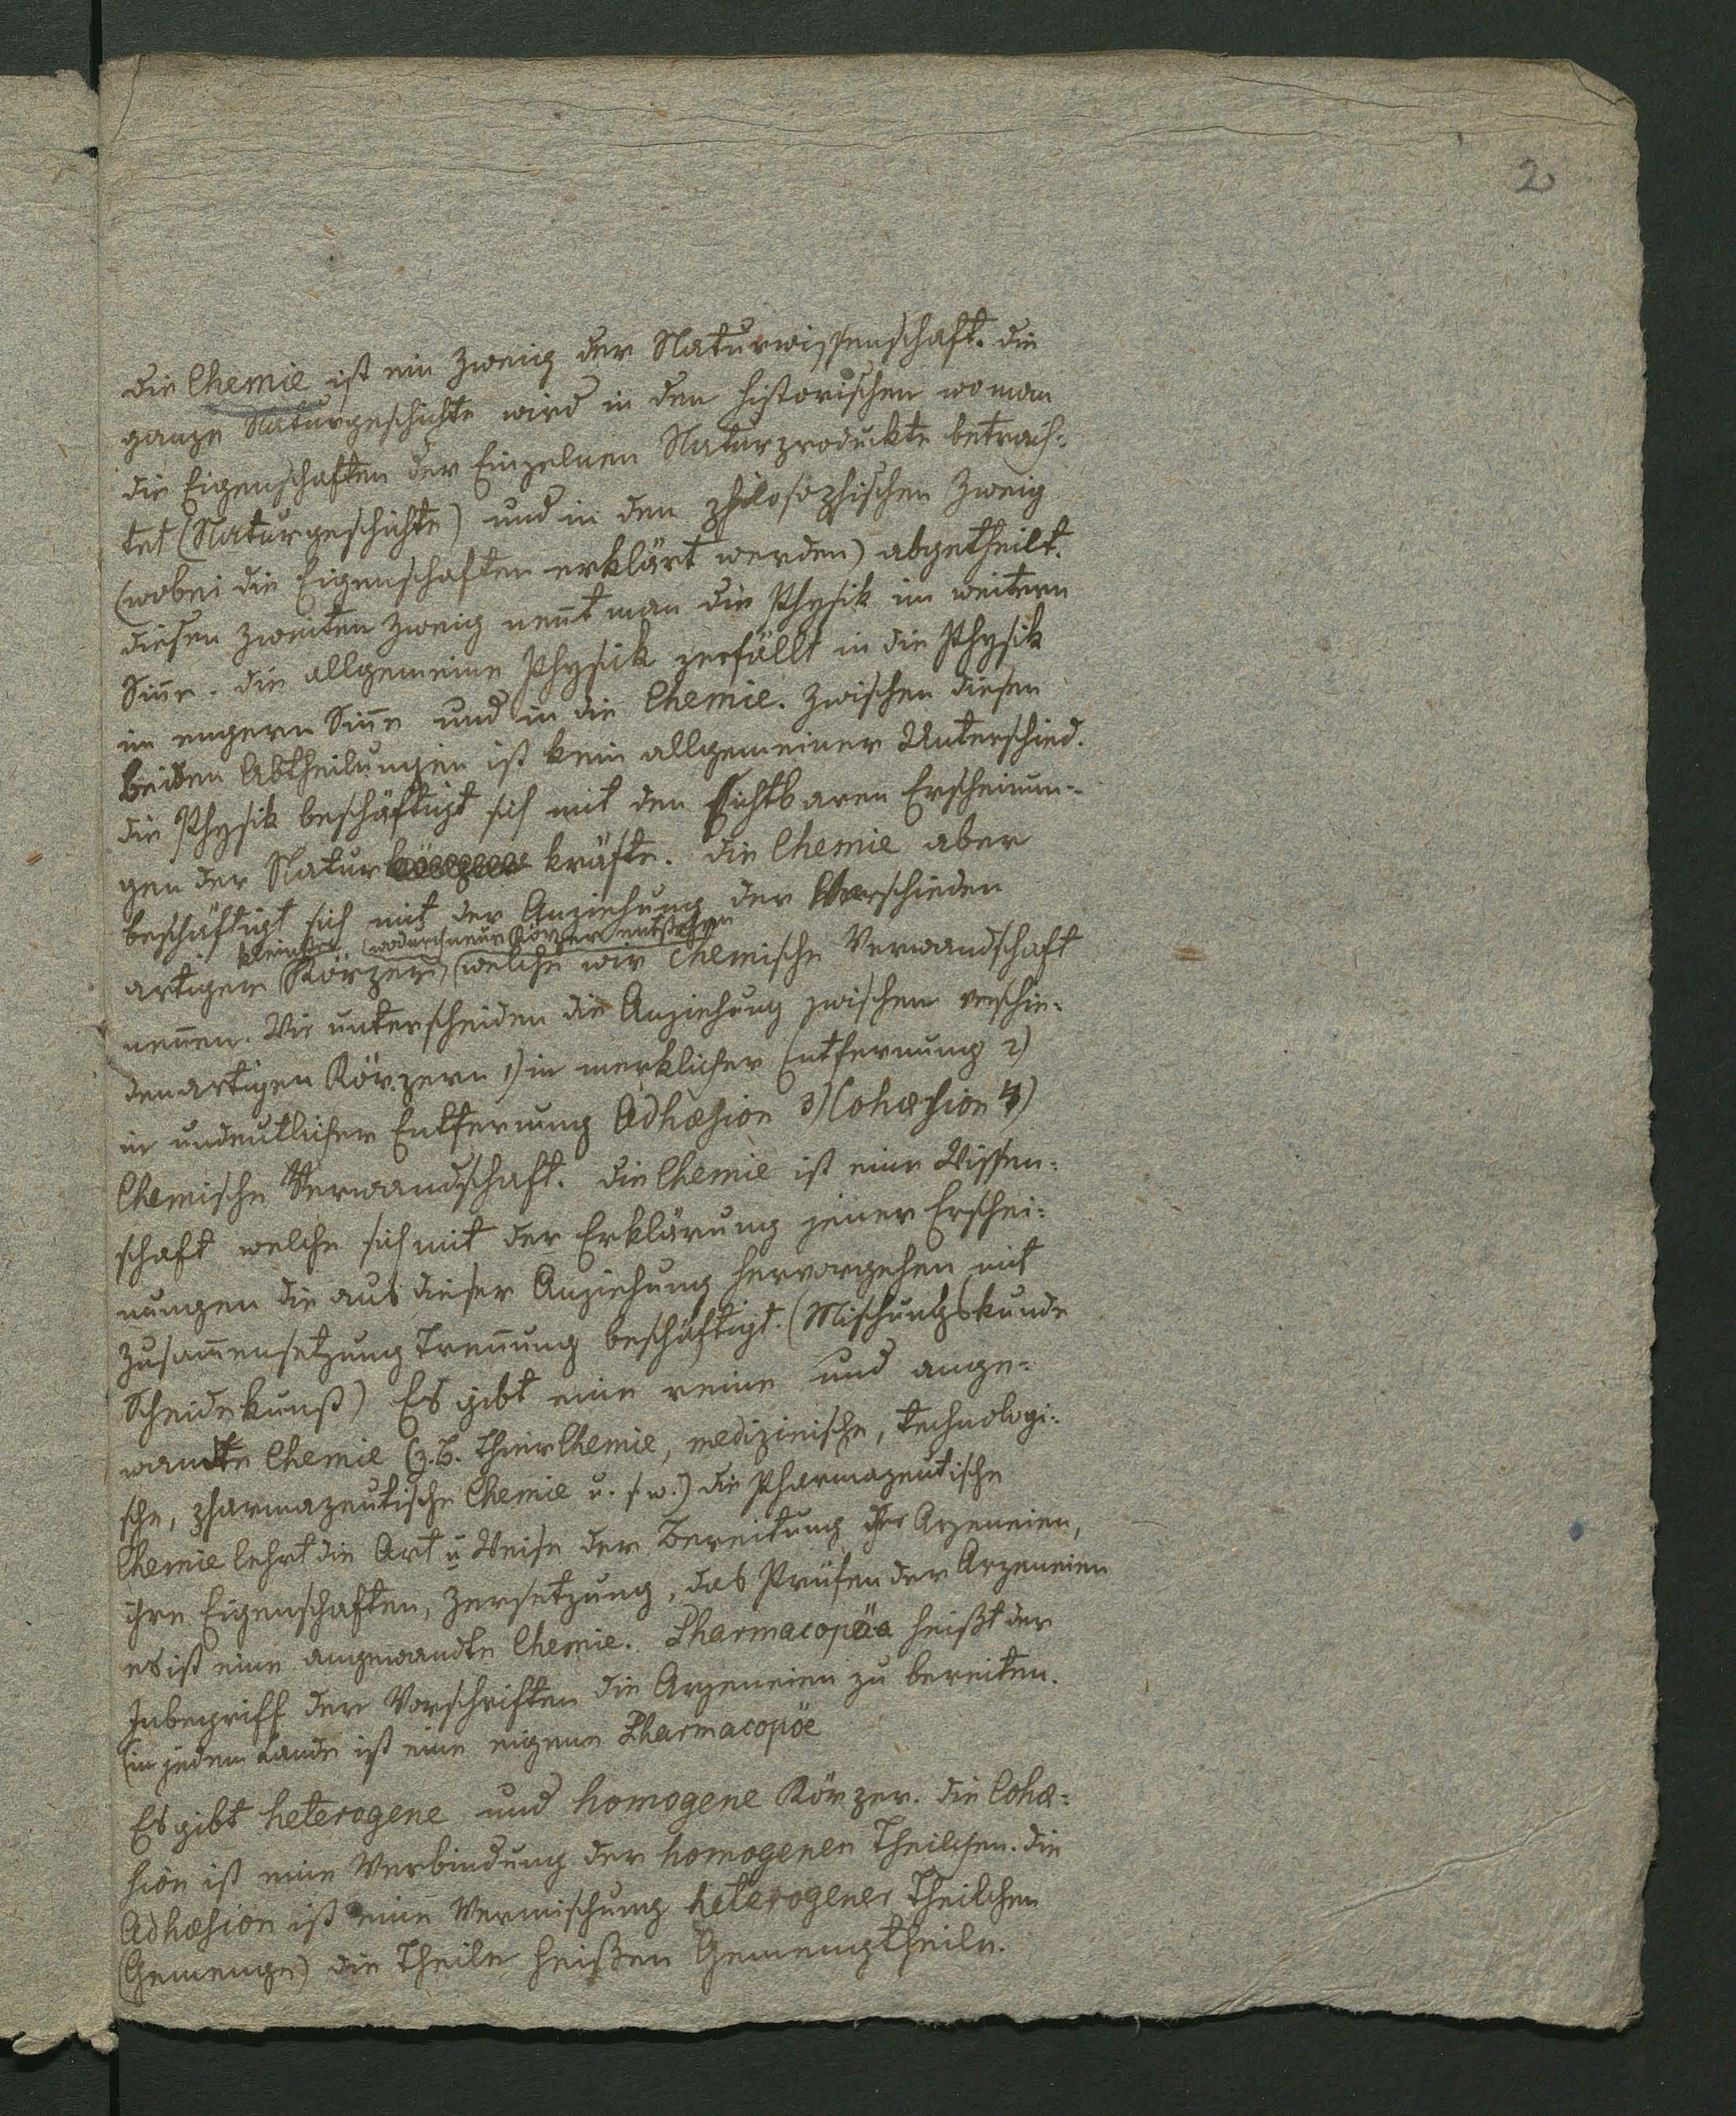 2
die Chemie ist ein Zweig der Naturwissenschaft. die
ganze Naturgeschichte wird in den historischen wo man
die Eigenschaften der Einzelnen Naturprodukte betrach-
tet (Naturgeschichte) und in den philosophischen Zweig
(wobei die Eigenschaften erklärt werden) abgetheilt.
diesen zweiten Zweig nen̄t man die Physik im weitern
Sin̄e. die allgemeine Physik zerfällt in die Physik
im engern Sin̄e und in die Chemie. Zwischen diesen
beiden Abtheilungen ist kein allgemeiner Unterschied.
die Physik beschäftigt sich mit den sichtbaren Erscheinun-
gen der Natur kräfte. die Chemie aber
beschäftigt sich mit der Anziehung der Verschieden
kleinster (wodurch neue Körper entstehen
artigen Körper, (welche wir chemische Verwandschaft
nen̄en. Wir unterscheiden die Anziehung zwischen verschie-
denartigen Körpern 1) in merklicher Entfernung 2)
in undeutlicher Entfernung Adhæsion 3) Cohæsion 4)
Chemische Verwandschaft. die Chemie ist eine Wissen-
schaft welche sich mit der Erklärung jener Erschei-
nungen die aus dieser Anziehung hervorgehen mit
Zusam̄ensetzung Tren̄ung beschäftigt. (Mischungskunde
Scheidekunst) Es gibt eine reine und ange-
wandte Chemie (z.B. ThierChemie, medizinische, technologi-
sche, pharmazeutische Chemie u. s. w.) die Pharmazeutische
Chemie lehrt die Art u Weise der Bereitung der Arzeneien,
ihre Eigenschaften, Zersetzung, das Prüfen der Arzeneien
es ist eine angewandte Chemie. Pharmacopöa heißt der
Inbegriff der Vorschriften die Arzeneien zu bereiten.
(in jedem Lande ist eine eigene Pharmacopöe
Es gibt heterogene und homogene Körper. die Cohæ-
sion ist eine Verbindung der homogenen Theilchen. die
Adhæsion ist eine Vermischung heterogener Theilchen
(Gemenge) die Theile heißen Gemengtheile.